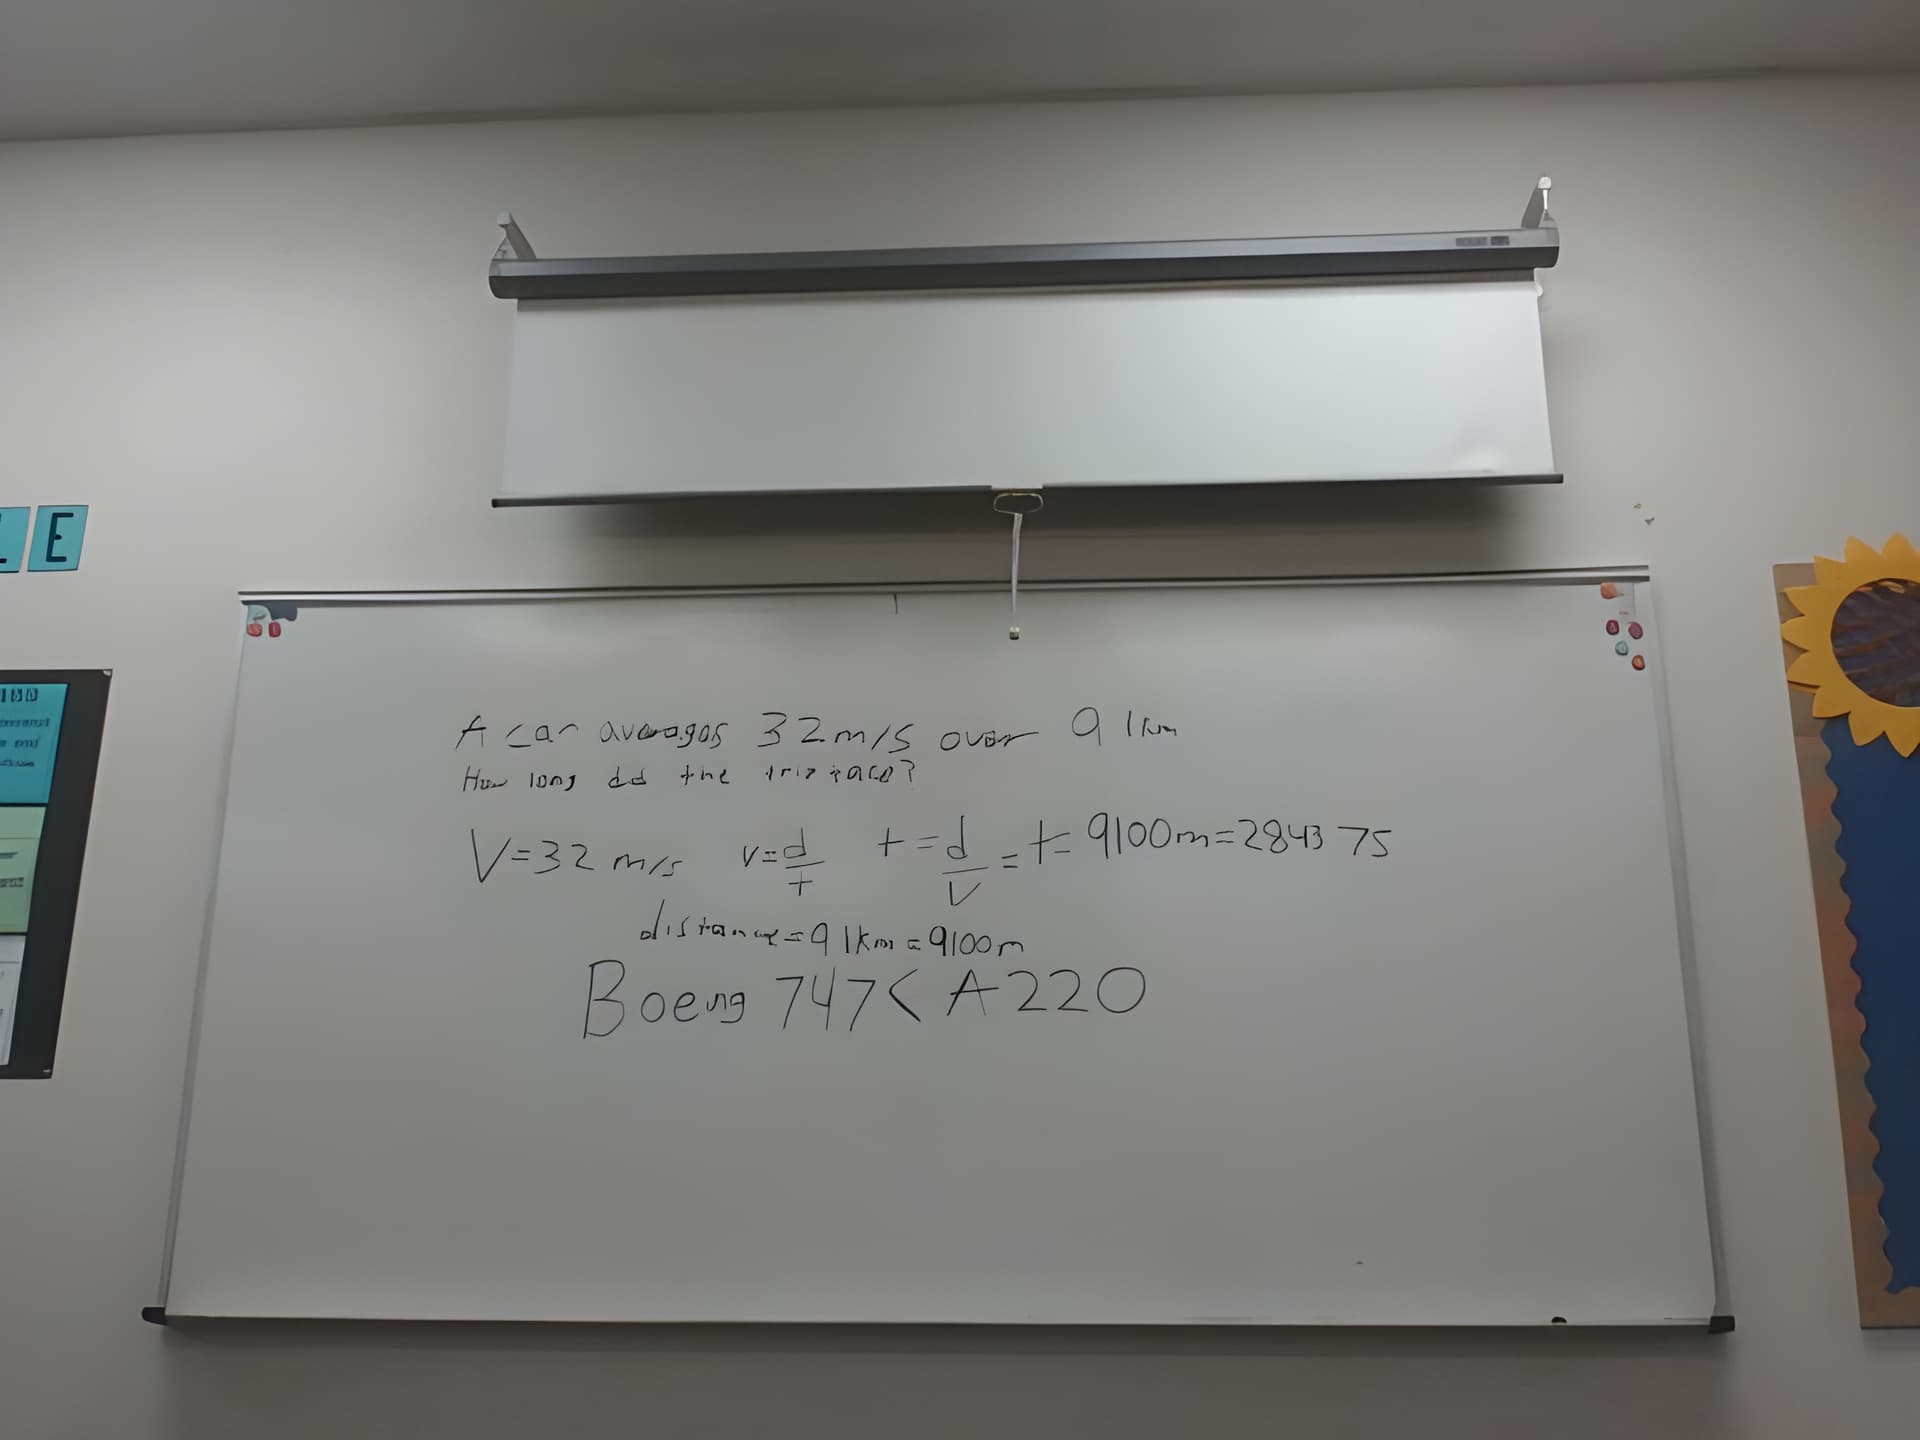 LE
A car averages 32 m/s over 9 1km
How long did the trip take?
V=32 m/s v=d/t t=d/v = t= 9100m=2843 75
distance=9 1km=9100m
Boeing 747< A220